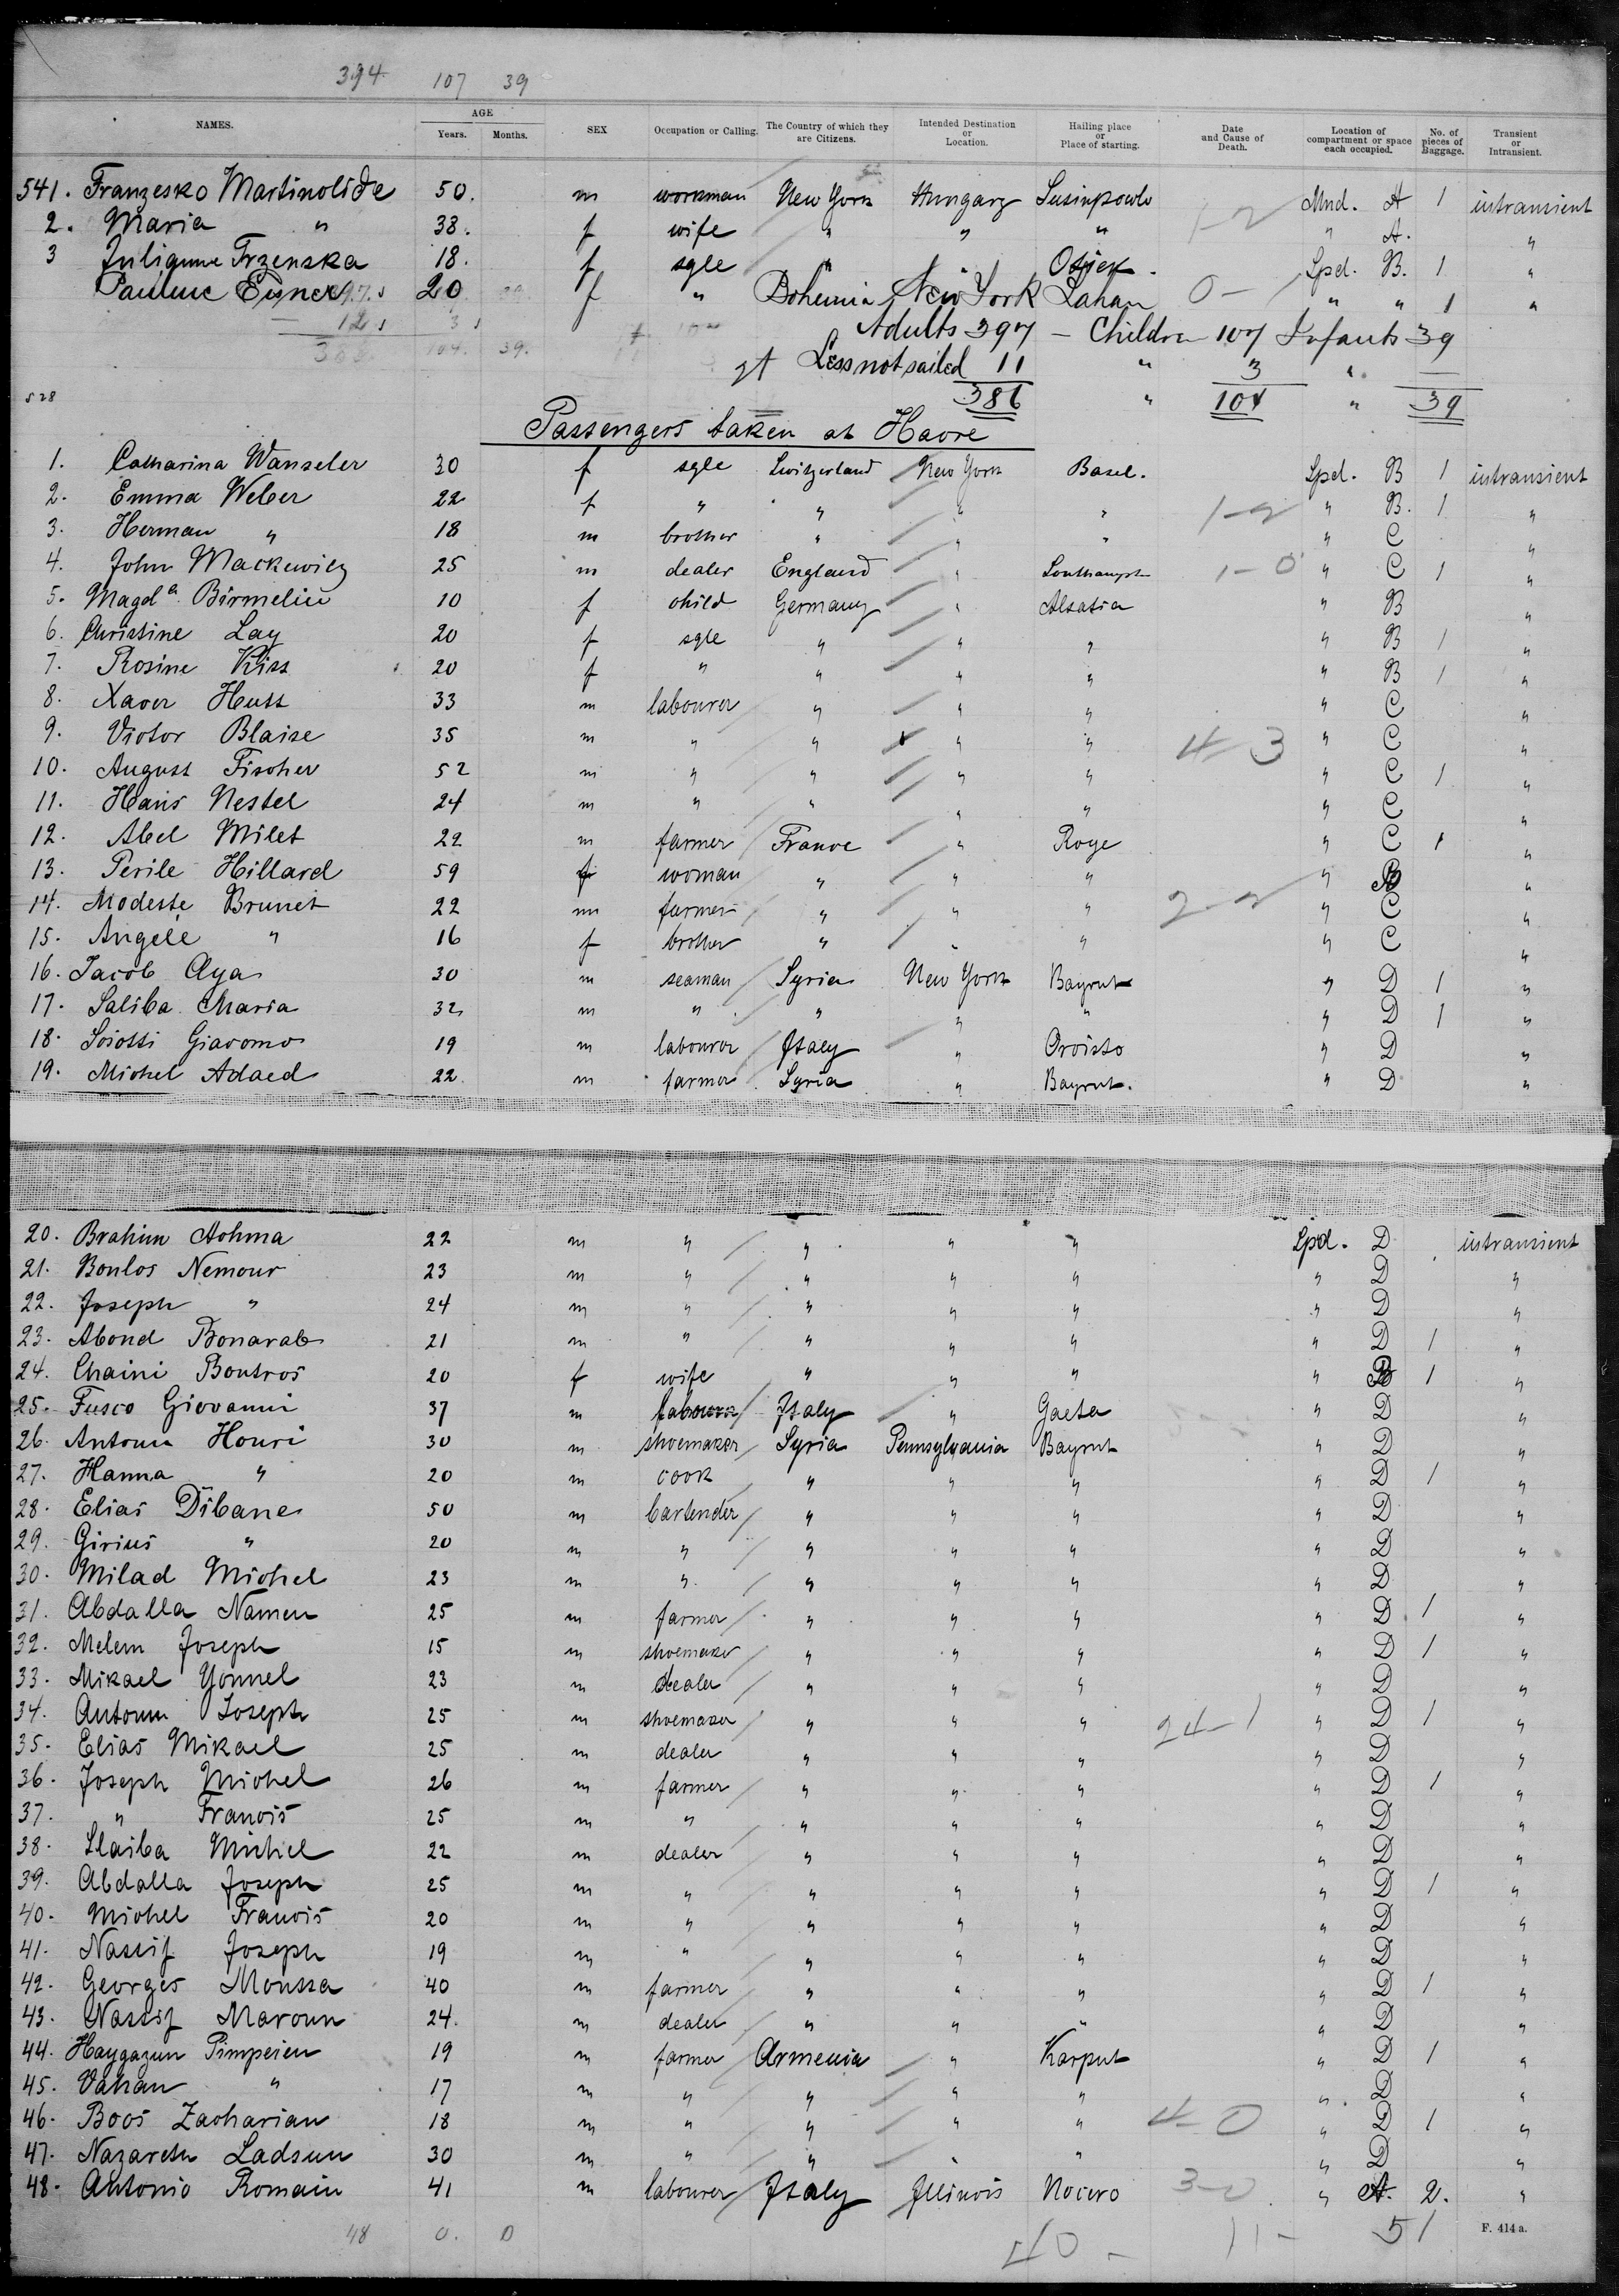 394 107 39
NAMES. AGE Years. Months. SEX Occupation or Calling. The Country of which they are Citizens. Intended Destination or Location. Hailing place or Place of starting. Date and Cause of Death. Location of compartment or space each occupied. No. of pieces of Baggage. Transient or Intransient.
541. Franzesko Martinolide 50. m workman New York Hungary Susinpowlo Mnd. A 1 intransient
2. Maria " 38. f wife " " " 1-2 " A. "
3 Juligune Trzenska 18. f sgle " " Osijek. Spd. B. 1 "
Pauline Eisner 20 f " Bohemia New York Lahan 0- " " 1 "
12 3 Adults 397 - Children 107 Infants 39
104. 39. Less not sailed 11 " 3 " —
528 386 " 104 " 39
Passengers taken at Havre
1. Catharina Wanseler 30 f sgle Switzerland New York Basel. Spd. B 1 intransient
2. Emma Weber 22 f " " " " 1-2 " B. 1 "
3. Herman " 18 m brother " " " " C "
4. John Mackewicz 25 m dealer England " Southampt 1-0 " C 1 "
5. Magda Birmelin 10 f child Germany " Alsatia " B "
6. Christine Lay 20 f sgle " " " " B 1 "
7. Rosine Kiss 20 f " " " " " B 1 "
8. Xaver Huss 33 m labourer " " " " C "
9. Victor Blaise 35 m " " " " 4-3 " C "
10. August Fischer 52 m " " " " " C 1 "
11. Hans Nestel 24 m " " " " " C "
12. Abel Milet 22 m farmer France " Roye " C 1 "
13. Perile Hillard 59 f woman " " " " B "
14. Modeste Brunet 22 m farmer " " " 2-2 " C "
15. Angele " 16 f brother " " " " C "
16. Jacob Aya 30 m seaman Syria New York Bayrut " D 1 "
17. Saliba Charia 32 m " " " " " D 1 "
18. Soiotti Giacomo 19 m labourer Italy " Croisto " D "
19. Michel Adaed 22 m farmer Syria " Bayrut. " D "
20. Brahim Aohma 22 m " " " " Spd. D intransient
21. Boulos Nemour 23 m " " " " " D "
22. Joseph " 24 m " " " " " D "
23. Abond Bonarab 21 m " " " " " D 1 "
24. Chaini Boutros 20 f wife " " " " B 1 "
25. Fusco Giovanni 37 m labourer Italy " Gaeta " D "
26. Antoun Houri 30 m shoemaker Syria Pennsylvania Bayrut " D "
27. Hanna " 20 m cook " " " " D 1 "
28. Elias Dibane 50 m bartender " " " " D "
29. Girius " 20 m " " " " " D "
30. Milad Michel 23 m " " " " " D "
31. Abdalla Namen 25 m farmer " " " " D 1 "
32. Melem Joseph 15 m shoemaker " " " " D 1 "
33. Mikael Younel 23 m dealer " " " " D "
34. Antoun Joseph 25 m shoemaker " " " 24-1 " D 1 "
35. Elias Mikael 25 m dealer " " " " D "
36. Joseph Michel 26 m farmer " " " " D 1 "
37. " Francis 25 m " " " " " D "
38. Slaiba Michel 22 m dealer " " " " D "
39. Abdalla Joseph 25 m " " " " " D 1 "
40. Michel Francis 20 m " " " " " D "
41. Nassif Joseph 19 m " " " " " D "
42. Georges Moussa 40 m farmer " " " " D 1 "
43. Nassif Maroun 24. m dealer " " " " D "
44. Haygazun Pimpeien 19 m farmer Armenia " Karput " D 1 "
45. Vahan " 17 m " " " " " D "
46. Boos Zacharian 18 m " " " " 4-0 " D 1 "
47. Nazareth Ladsun 30 m " " " " " D "
48. Antonio Romain 41 m labourer Italy Illinois Nocero 3-0 " A. 2. "
48 0. 0 40 - 11- 51 F. 414 a.